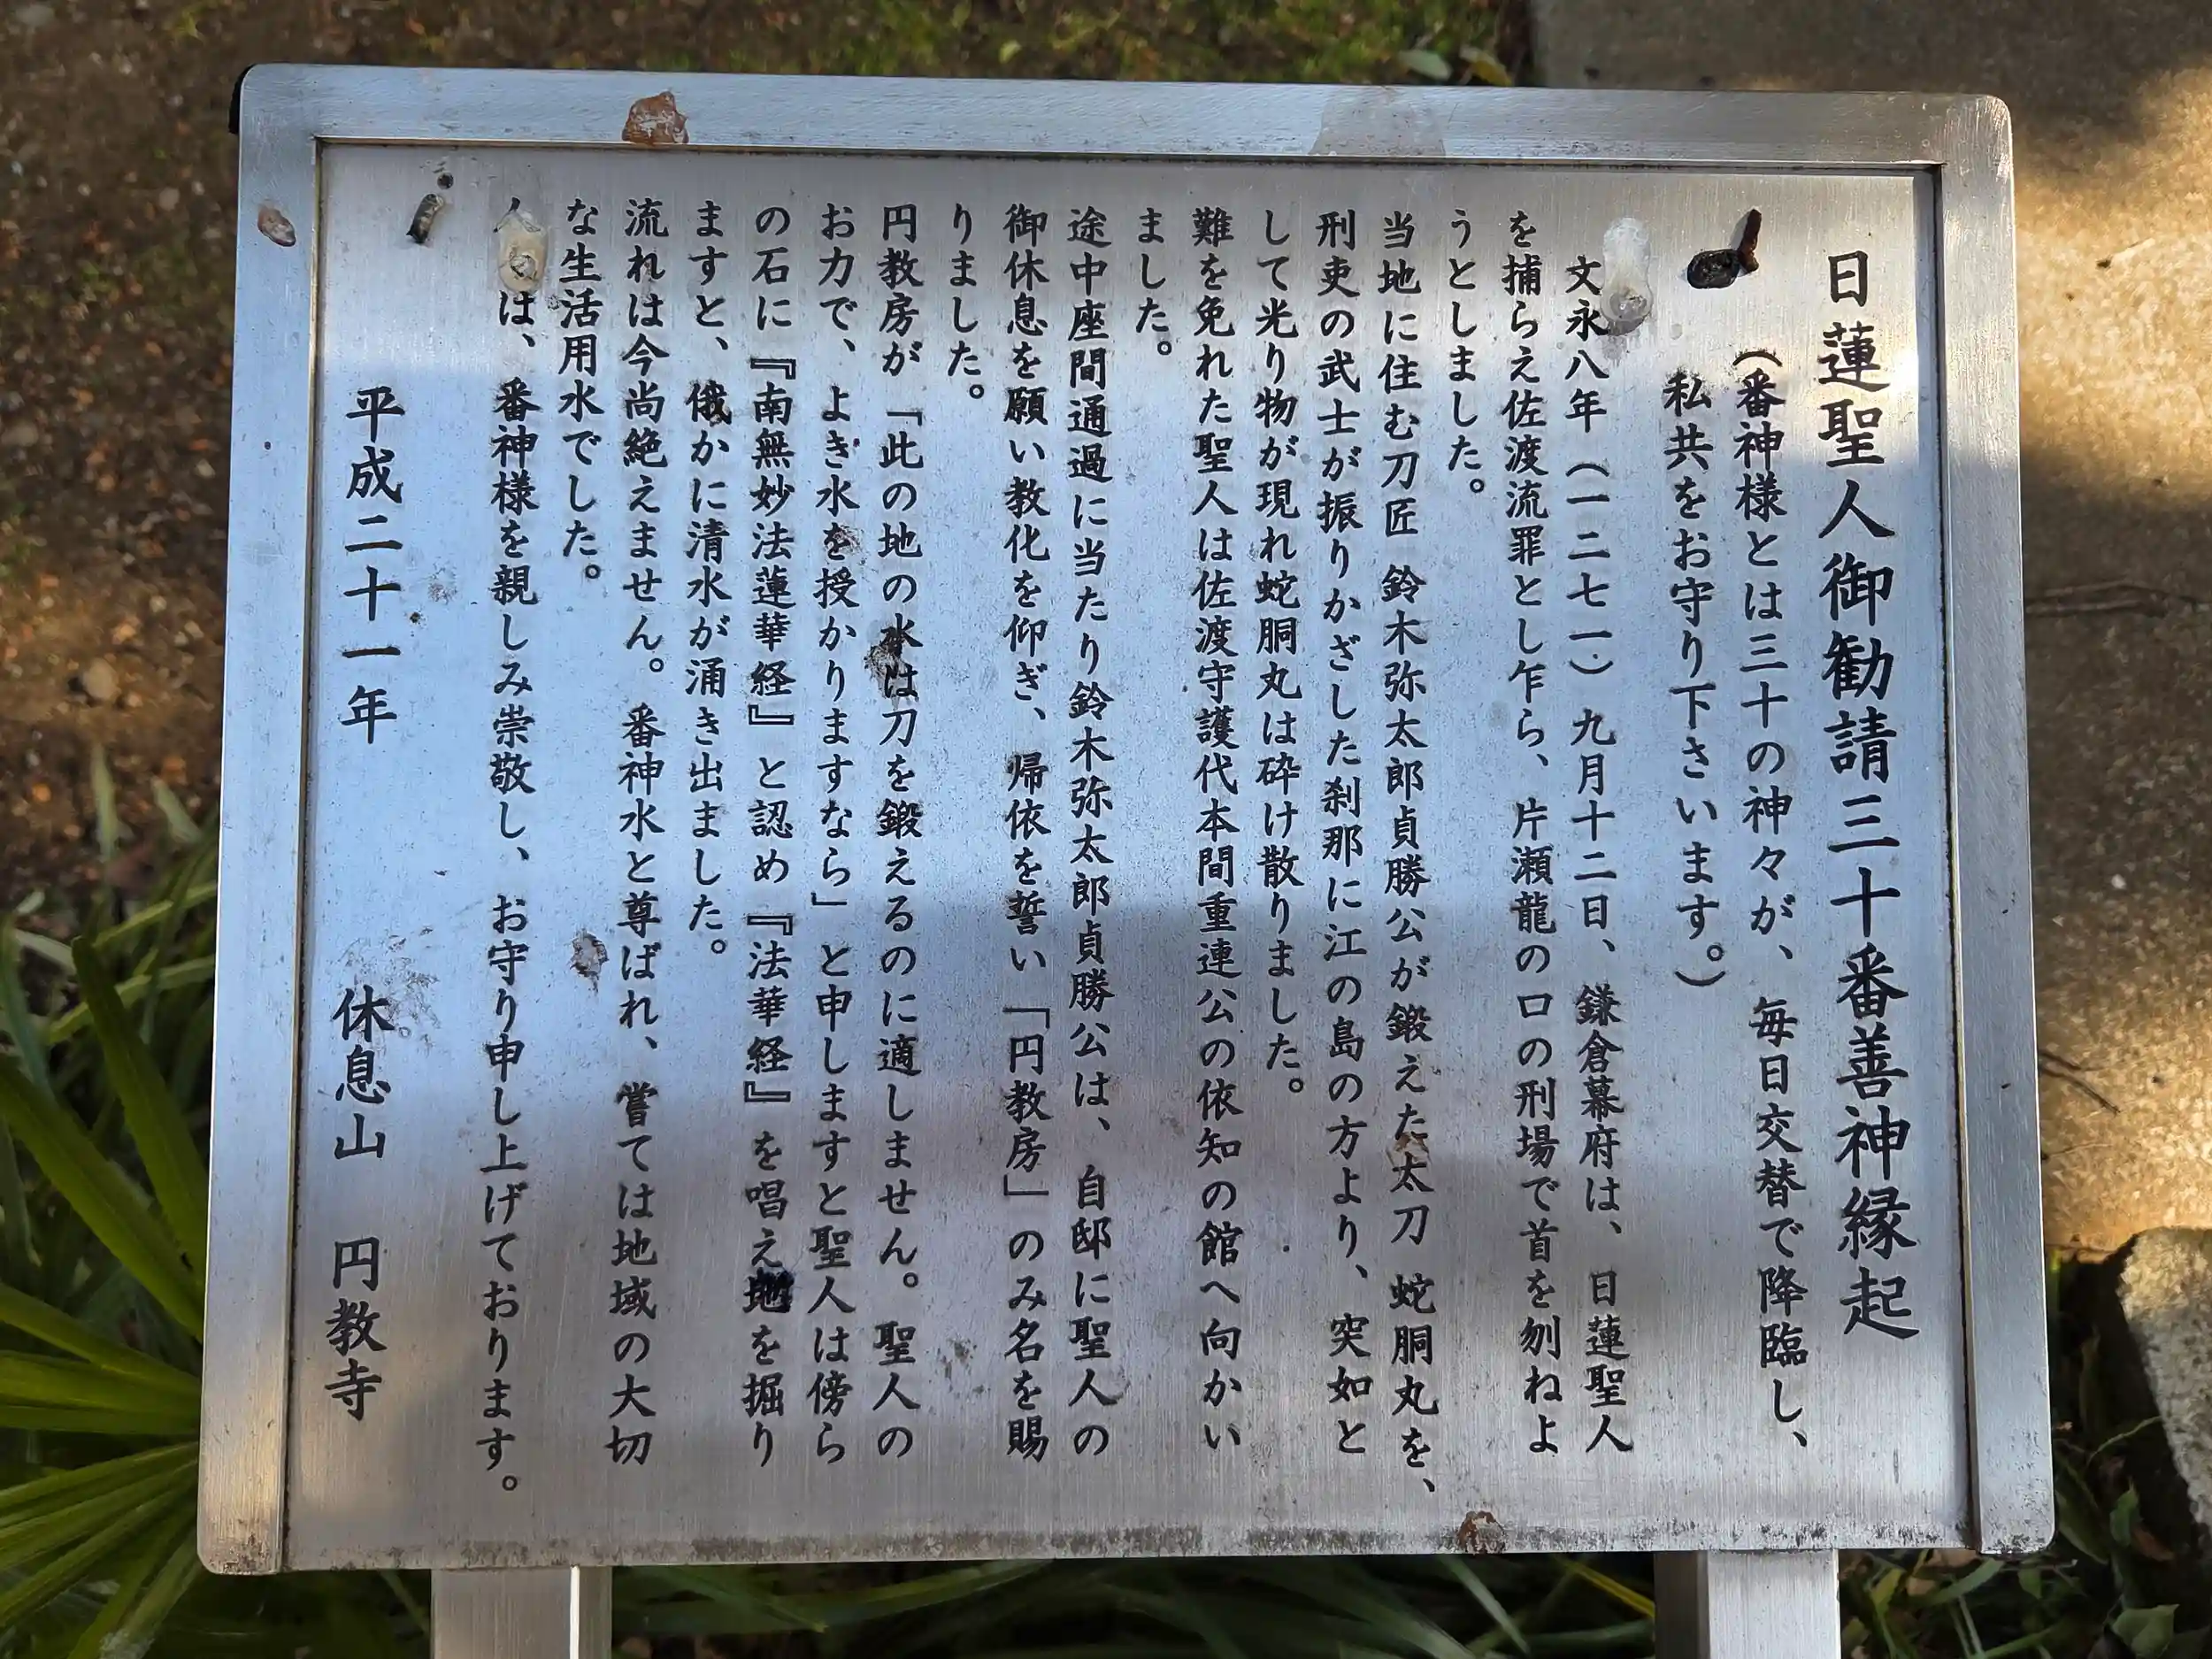 日蓮聖人御勧請三十番善神縁起
（番神様とは三十の神々が、毎日交替で降臨し、
私共をお守り下さいます。）
文永八年（一二七一）九月十二日、鎌倉幕府は、日蓮聖人
を捕らえ佐渡流罪とし乍ら、片瀬龍の口の刑場で首を刎ねよ
うとしました。
当地に住む刀匠 鈴木弥太郎貞勝公が鍛えた太刀 蛇胴丸を、
刑吏の武士が振りかざした刹那に江の島の方より、突如と
して光り物が現れ蛇胴丸は砕け散りました。
難を免れた聖人は佐渡守護代本間重連公の依知の館へ向かい
ました。
途中座間通過に当たり鈴木弥太郎貞勝公は、自邸に聖人の
御休息を願い教化を仰ぎ、帰依を誓い「円教房」のみ名を賜
りました。
円教房が「此の地の水は刀を鍛えるのに適しません。聖人の
お力で、よき水を授かりますなら」と申しますと聖人は傍ら
の石に『南無妙法蓮華経』と認め『法華経』を唱え地を掘り
ますと、俄かに清水が涌き出ました。
流れは今尚絶えません。番神水と尊ばれ、嘗ては地域の大切
な生活用水でした。
は、番神様を親しみ崇敬し、お守り申し上げております。
平成二十一年 休息山 円教寺